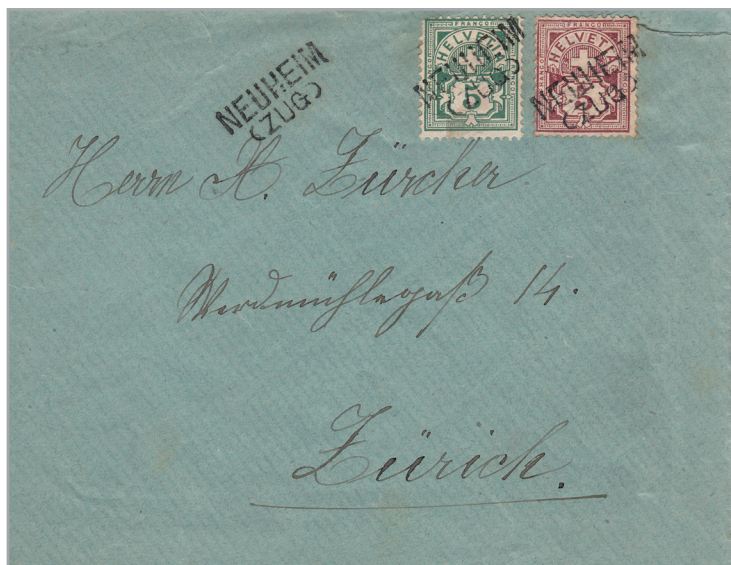 NEUHEIM
(ZUG)
FRANCO
HELVETIA
5
NEUHEIM
(ZUG)
FRANCO
HELVETIA
5
NEUHEIM
(ZUG)
Herrn A. Zürcher
Werdmühlegaß 14.
Zürich.